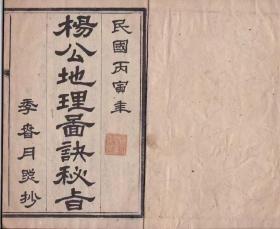 民國丙寅年
楊公地理啚訣秘旨
季春月㷼抄